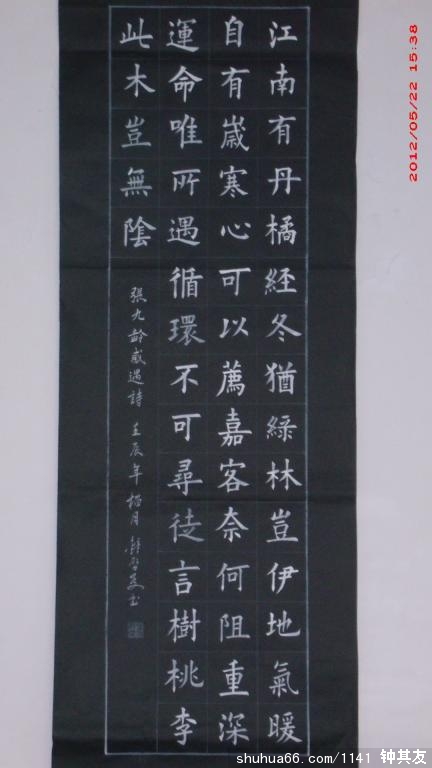 江南有丹橘経冬猶緑林豈伊地氣暖
自有嵗寒心可以薦嘉客奈何阻重深
運命唯所遇循環不可尋徒言樹桃李
此木豈無陰
張九齡感遇詩 壬辰年榴月
2012/05/22 15:38
shuhua66.com/1141 钟其友